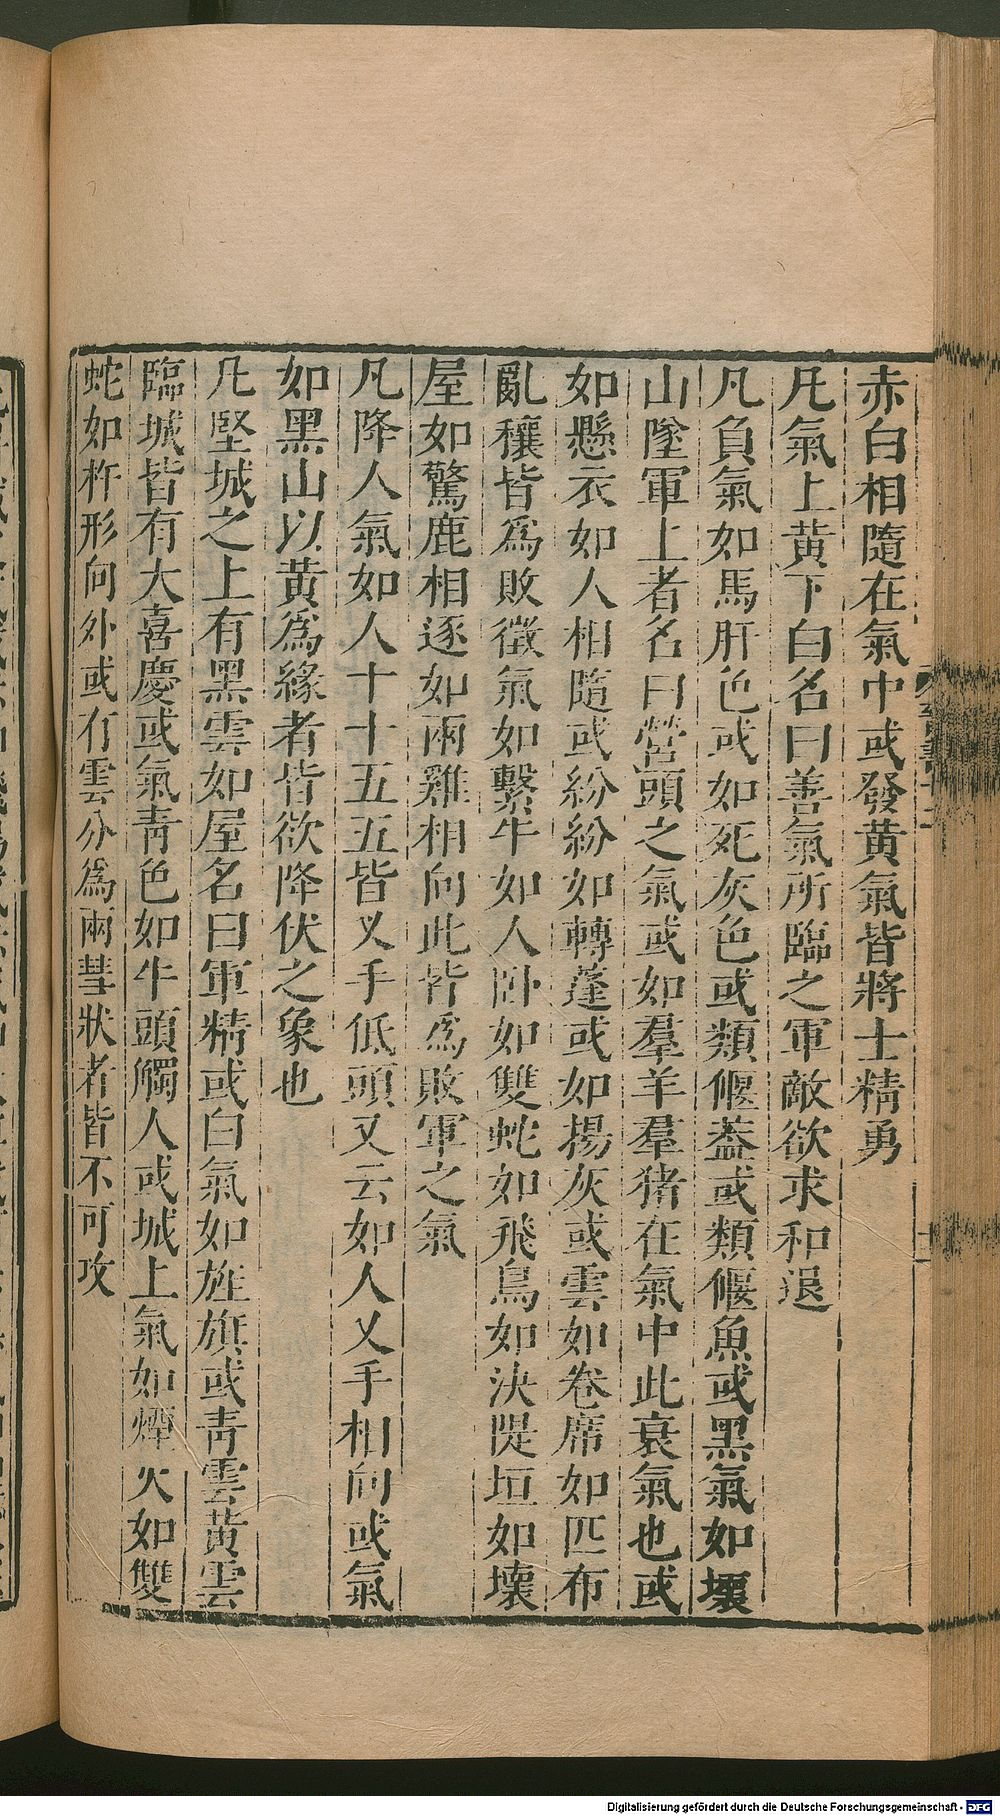 赤白相隨在氣中或發黃氣皆將士精勇
凡氣上黃下白名曰善氣所臨之軍敵欲求和退
凡負氣如馬肝色或如死灰色或類偃蓋或類偃魚或黑氣如壞
山墜軍上者名曰營頭之氣或如羣羊羣猪在氣中此衰氣也或
如懸衣如人相隨或紛紛如轉蓬或如揚灰或雲如卷席如匹布
亂穰皆爲敗徵氣如繫牛如人臥如雙蛇如飛鳥如決隄垣如壞
屋如驚鹿相逐如兩雞相向此皆爲敗軍之氣
凡降人氣如人十十五五皆叉手低頭又云如人叉手相向或氣
如黑山以黃爲緣者皆欲降伏之象也
凡堅城之上有黑雲如屋名曰軍精或白氣如旌旗或青雲黃雲
臨城皆有大喜慶或氣青色如牛頭觸人或城上氣如煙火如雙
蛇如杵形向外或有雲分爲兩彗狀者皆不可攻
Digitalisierung gefördert durch die Deutsche Forschungsgemeinschaft - DFG